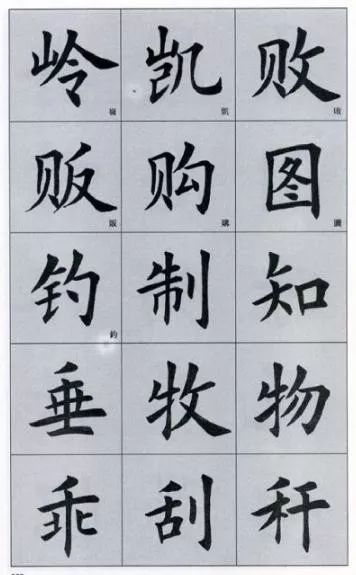 岭嶺 凯凱 败敗
贩販 购購 图圖
钓釣 制 知
垂 牧 物
乖 刮 秆